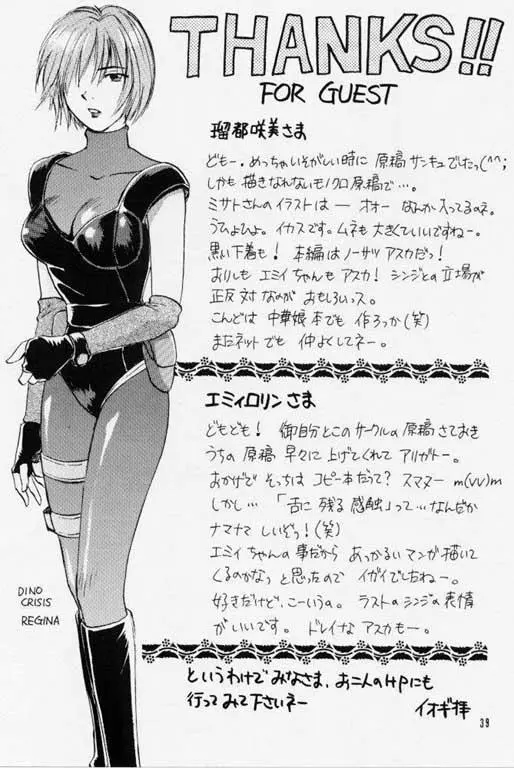 THANKS!!
FOR GUEST
瑠都咲美さま
どもー。めっちゃいそがしい時に 原稿サンキュでしたっ(^^;
しかも描きなれないモノクロ原稿で…。
ミサトさんのイラストは― オオー なんか入ってるのネ。
うひょひょ。イカスです。ムネも大きくていいですねー。
黒い下着も！ 本編はノーサツアスカだっ！
おりしもエミイちゃんもアスカ！ シンジとの立場が
正反対なのが おもしろいっス。
こんどは 中華娘本でも 作ろっか(笑)
またネットでも 仲よくしてネー。
エミィロリンさま
どもども！ 御自分とこのサークルの原稿さておき
うちの原稿 早々に上げてくれて アリガトー。
おかげで そっちは コピー本だって？ スマヌー m(vv)m
しかし… 「舌に残る感触」って…なんだか
ナマナマしいぞっ！(笑)
エミイちゃんの事だから あっかるいマンガ描いて
くるのかなっ と思ったので イガイでしたねー。
好きだけど、こーいうの。 ラストのシンジの表情
がいいです。 ドレイなアスカもー。
DINO
CRISIS
REGINA
というわけで みなさま、お二人のHPにも
行ってみて下さいネー
イオギ拝
39